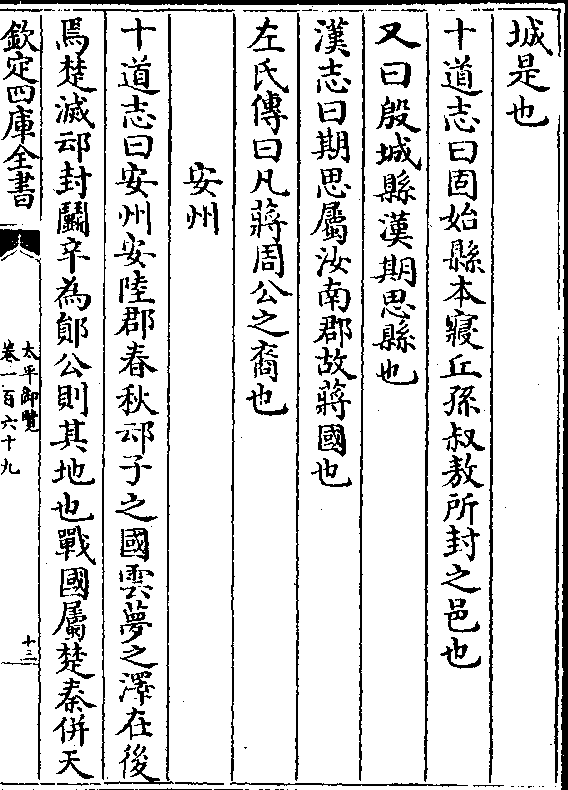 城是也
十道志曰固始縣本寢丘孫叔敖所封之邑也
又曰殷城縣漢期思縣也
漢志曰期思屬汝南郡故蔣國也
左氏傳曰凡蔣周公之裔也
安州
十道志曰安州安陸郡春秋䢵子之國雲夢之澤在後
焉楚滅䢵封鬬辛為鄖公則其地也戰國屬楚秦併天
欽定四庫全書
太平御覽
卷一百六十九
十三